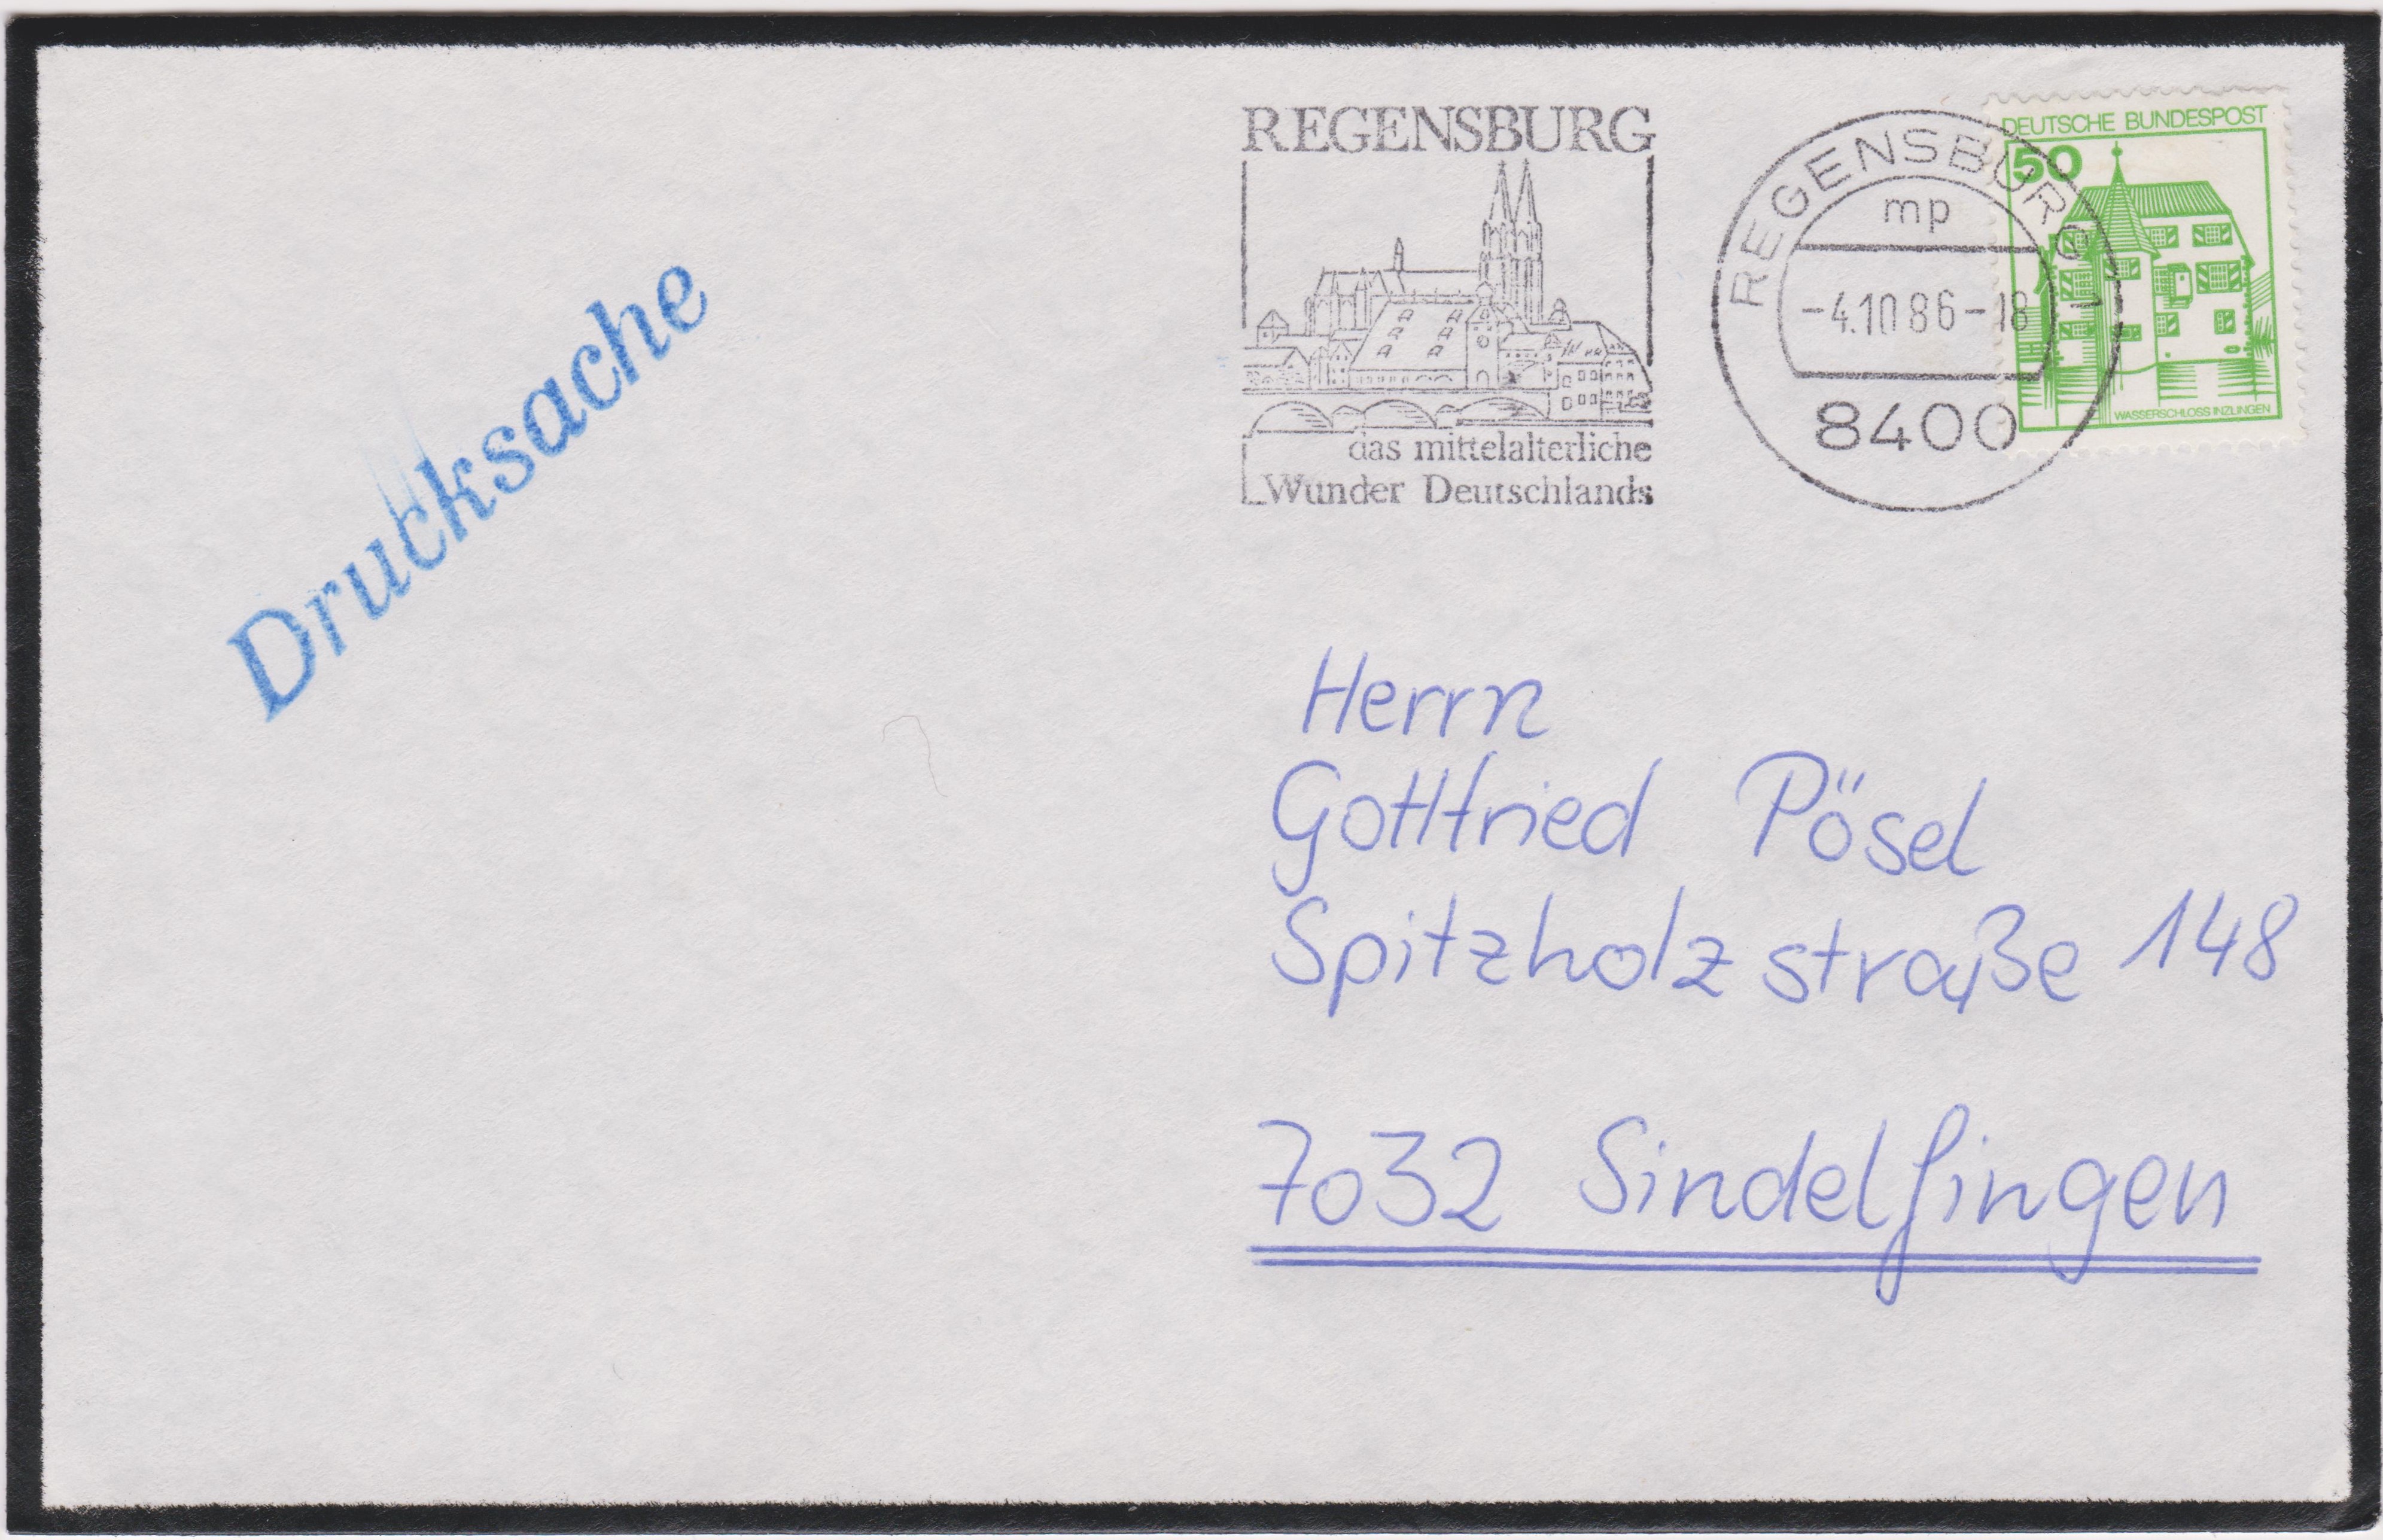 REGENSBURG
das mittelalterliche
Wunder Deutschlands
REGENSBURG 1
mp
-4.10.86-18
8400
DEUTSCHE BUNDESPOST
50
WASSERSCHLOSS INZLINGEN
Drucksache
Herrn
Gottfried Pösel
Spitzholzstraße 148
7032 Sindelfingen